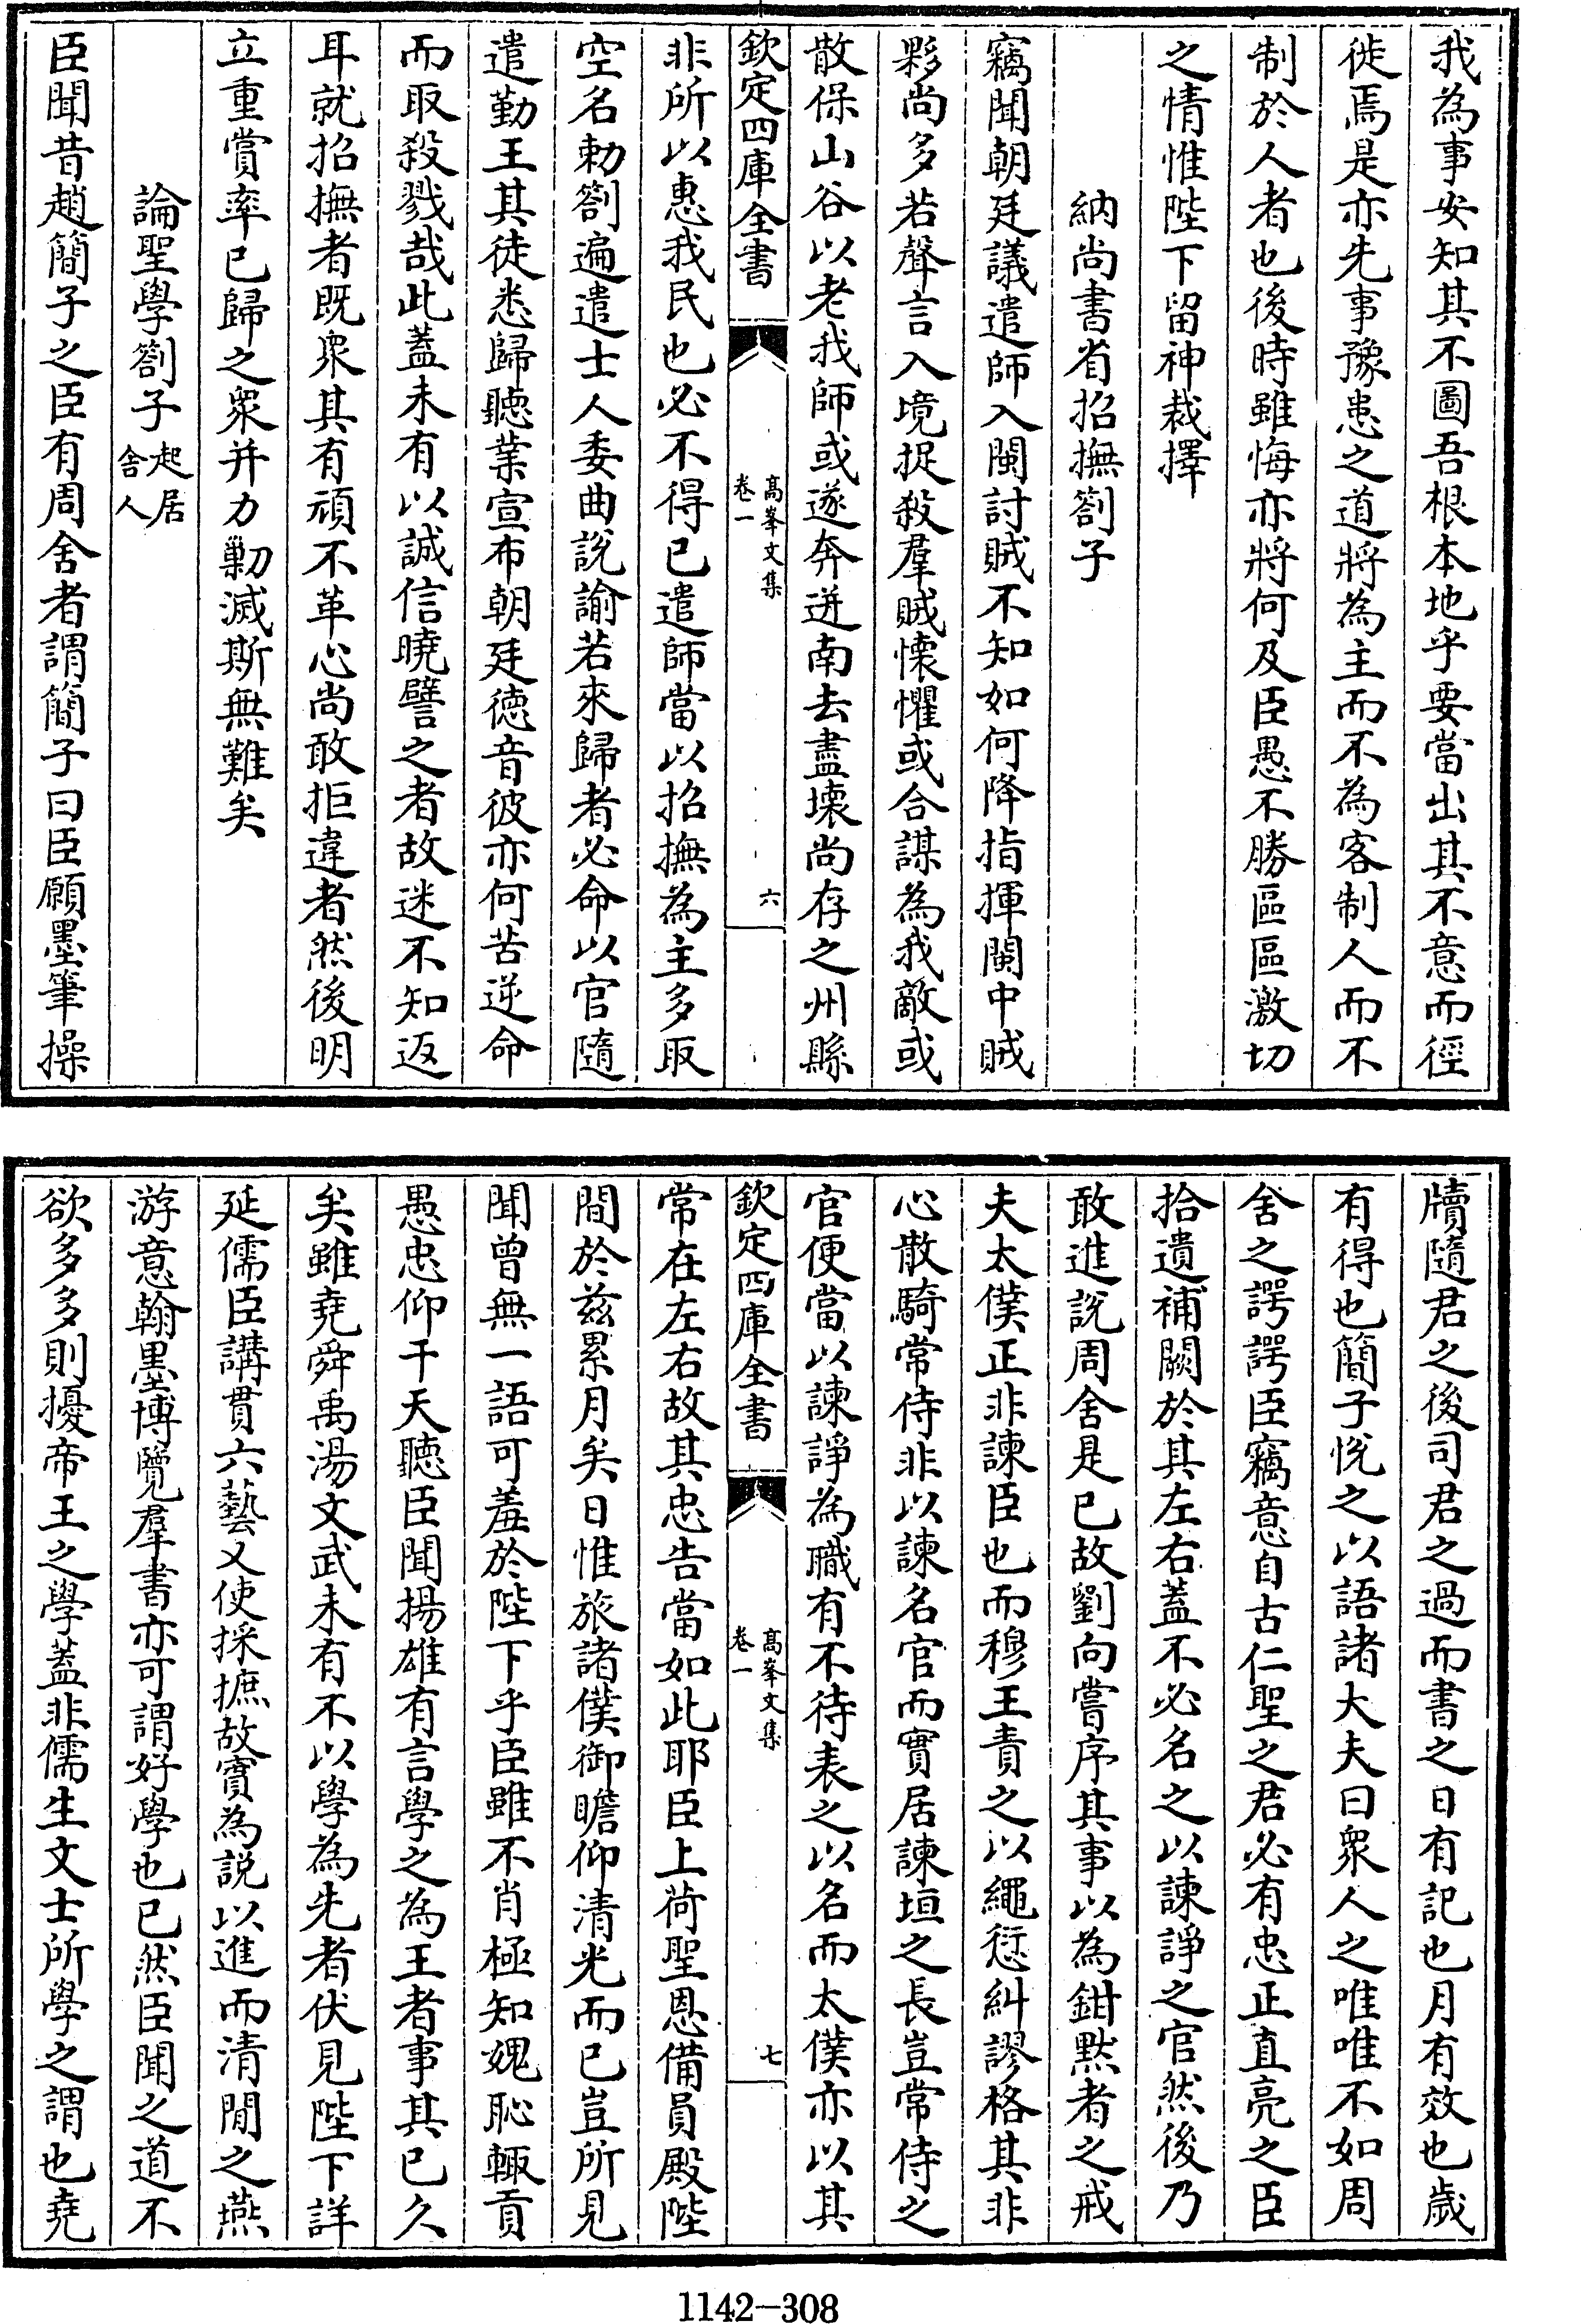 我為事安知其不圖吾根本地乎要當出其不意而徑
徙焉是亦先事豫患之道將為主而不為客制人而不
制於人者也後時雖悔亦將何及臣愚不勝區區激切
之情惟陛下留神裁擇
納尚書省招撫劄子
竊聞朝廷議遣師入閩討賊不知如何降指揮閩中賊
夥尚多若聲言入境捉殺羣賊懐懼或合謀為我敵或
散保山谷以老我師或遂奔迸南去盡壊尚存之州縣
欽定四庫全書
高峯文集
卷一
六
非所以惠我民也必不得已遣師當以招撫為主多取
空名勅劄遍遣士人委曲說諭若來歸者必命以官隨
遣勤王其徒悉歸聽業宣布朝廷徳音彼亦何苦逆命
而取殺戮哉此蓋未有以誠信曉譬之者故迷不知返
耳就招撫者既衆其有頑不革心尚敢拒違者然後明
立重賞率已歸之衆并力勦滅斯無難矣
論聖學劄子起居舍人
臣聞昔趙簡子之臣有周舍者謂簡子曰臣願墨筆操
牘隨君之後司君之過而書之日有記也月有效也歲
有得也簡子悅之以語諸大夫曰衆人之唯唯不如周
舍之諤諤臣竊意自古仁聖之君必有忠正直亮之臣
拾遺補闕於其左右蓋不必名之以諫諍之官然後乃
敢進說周舍是已故劉向嘗序其事以為鉗黙者之戒
夫太僕正非諫臣也而穆王責之以繩愆糾謬格其非
心散騎常侍非以諫名官而實居諫垣之長豈常侍之
官便當以諫諍為職有不待表之以名而太僕亦以其
欽定四庫全書
高峯文集
卷一
七
常在左右故其忠告當如此耶臣上荷聖恩備員殿陛
間於兹累月矣日惟旅諸僕御瞻仰清光而已豈所見
聞曾無一語可羞於陛下乎臣雖不肖極知媿恥輙貢
愚忠仰干天聽臣聞揚雄有言學之為王者事其已久
矣雖堯舜禹湯文武未有不以學為先者伏見陛下詳
延儒臣講貫六藝又使採摭故實為説以進而清閒之燕
游意翰墨博覽羣書亦可謂好學也已然臣聞之道不
欲多多則擾帝王之學蓋非儒生文士所學之謂也堯
1142-308